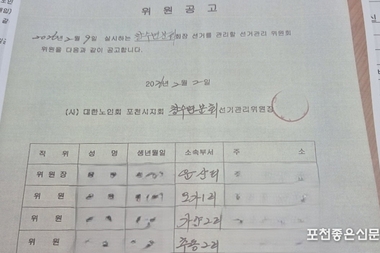 위 원 공 고
2026년 2월 9일 실시하는 창수면분회장 선거를 관리할 선거관리 위원회
위원을 다음과 같이 공고합니다.
2026. 2. 2일
(사) 대한노인회 포천시지회 창수면분회선거관리위원장
직 위 성 명 생년월일 소속부서 주 소
위 원 장
위 원 오가1리
위 원 가양2리
위 원 주원2리
포천좋은신문